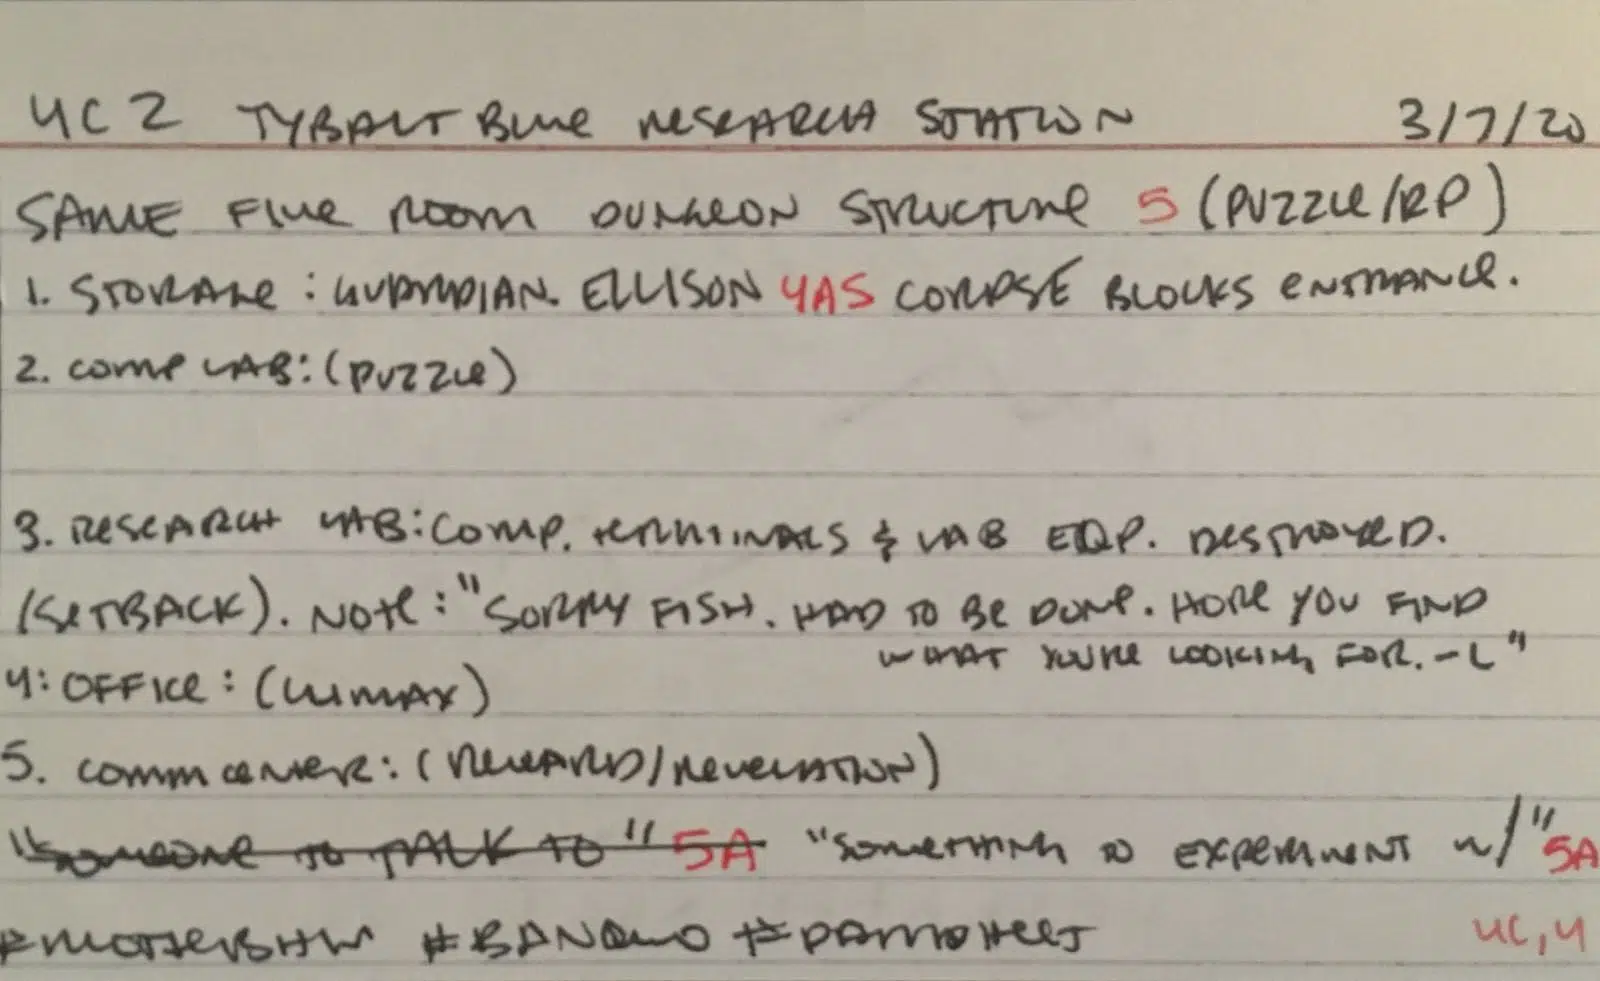 4C2 TYBALT BLUE RESEARCH STATION 3/7/20
SAME FIVE ROOM DUNGEON STRUCTURE 5 (PUZZLE/RP)
1. STORAGE: GUARDIAN. ELLISON 4A5 CORPSE BLOCKS ENTRANCE.
2. COMP LAB: (PUZZLE)
3. RESEARCH LAB: COMP. TERMINALS & LAB EQP. DESTROYED.
(SETBACK). NOTE: "SORRY FISH. HAD TO BE DONE. HOPE YOU FIND
WHAT YOU'RE LOOKING FOR. -L"
4: OFFICE: (CLIMAX)
5. COMM CENTER: (REWARD/REVELATION)
"SOMEONE TO TALK TO" 5A "SOMETHING TO EXPERIMENT W/" 5A
#MOTHERSHIP #BANQUO #DAMOHEET
4C, 4